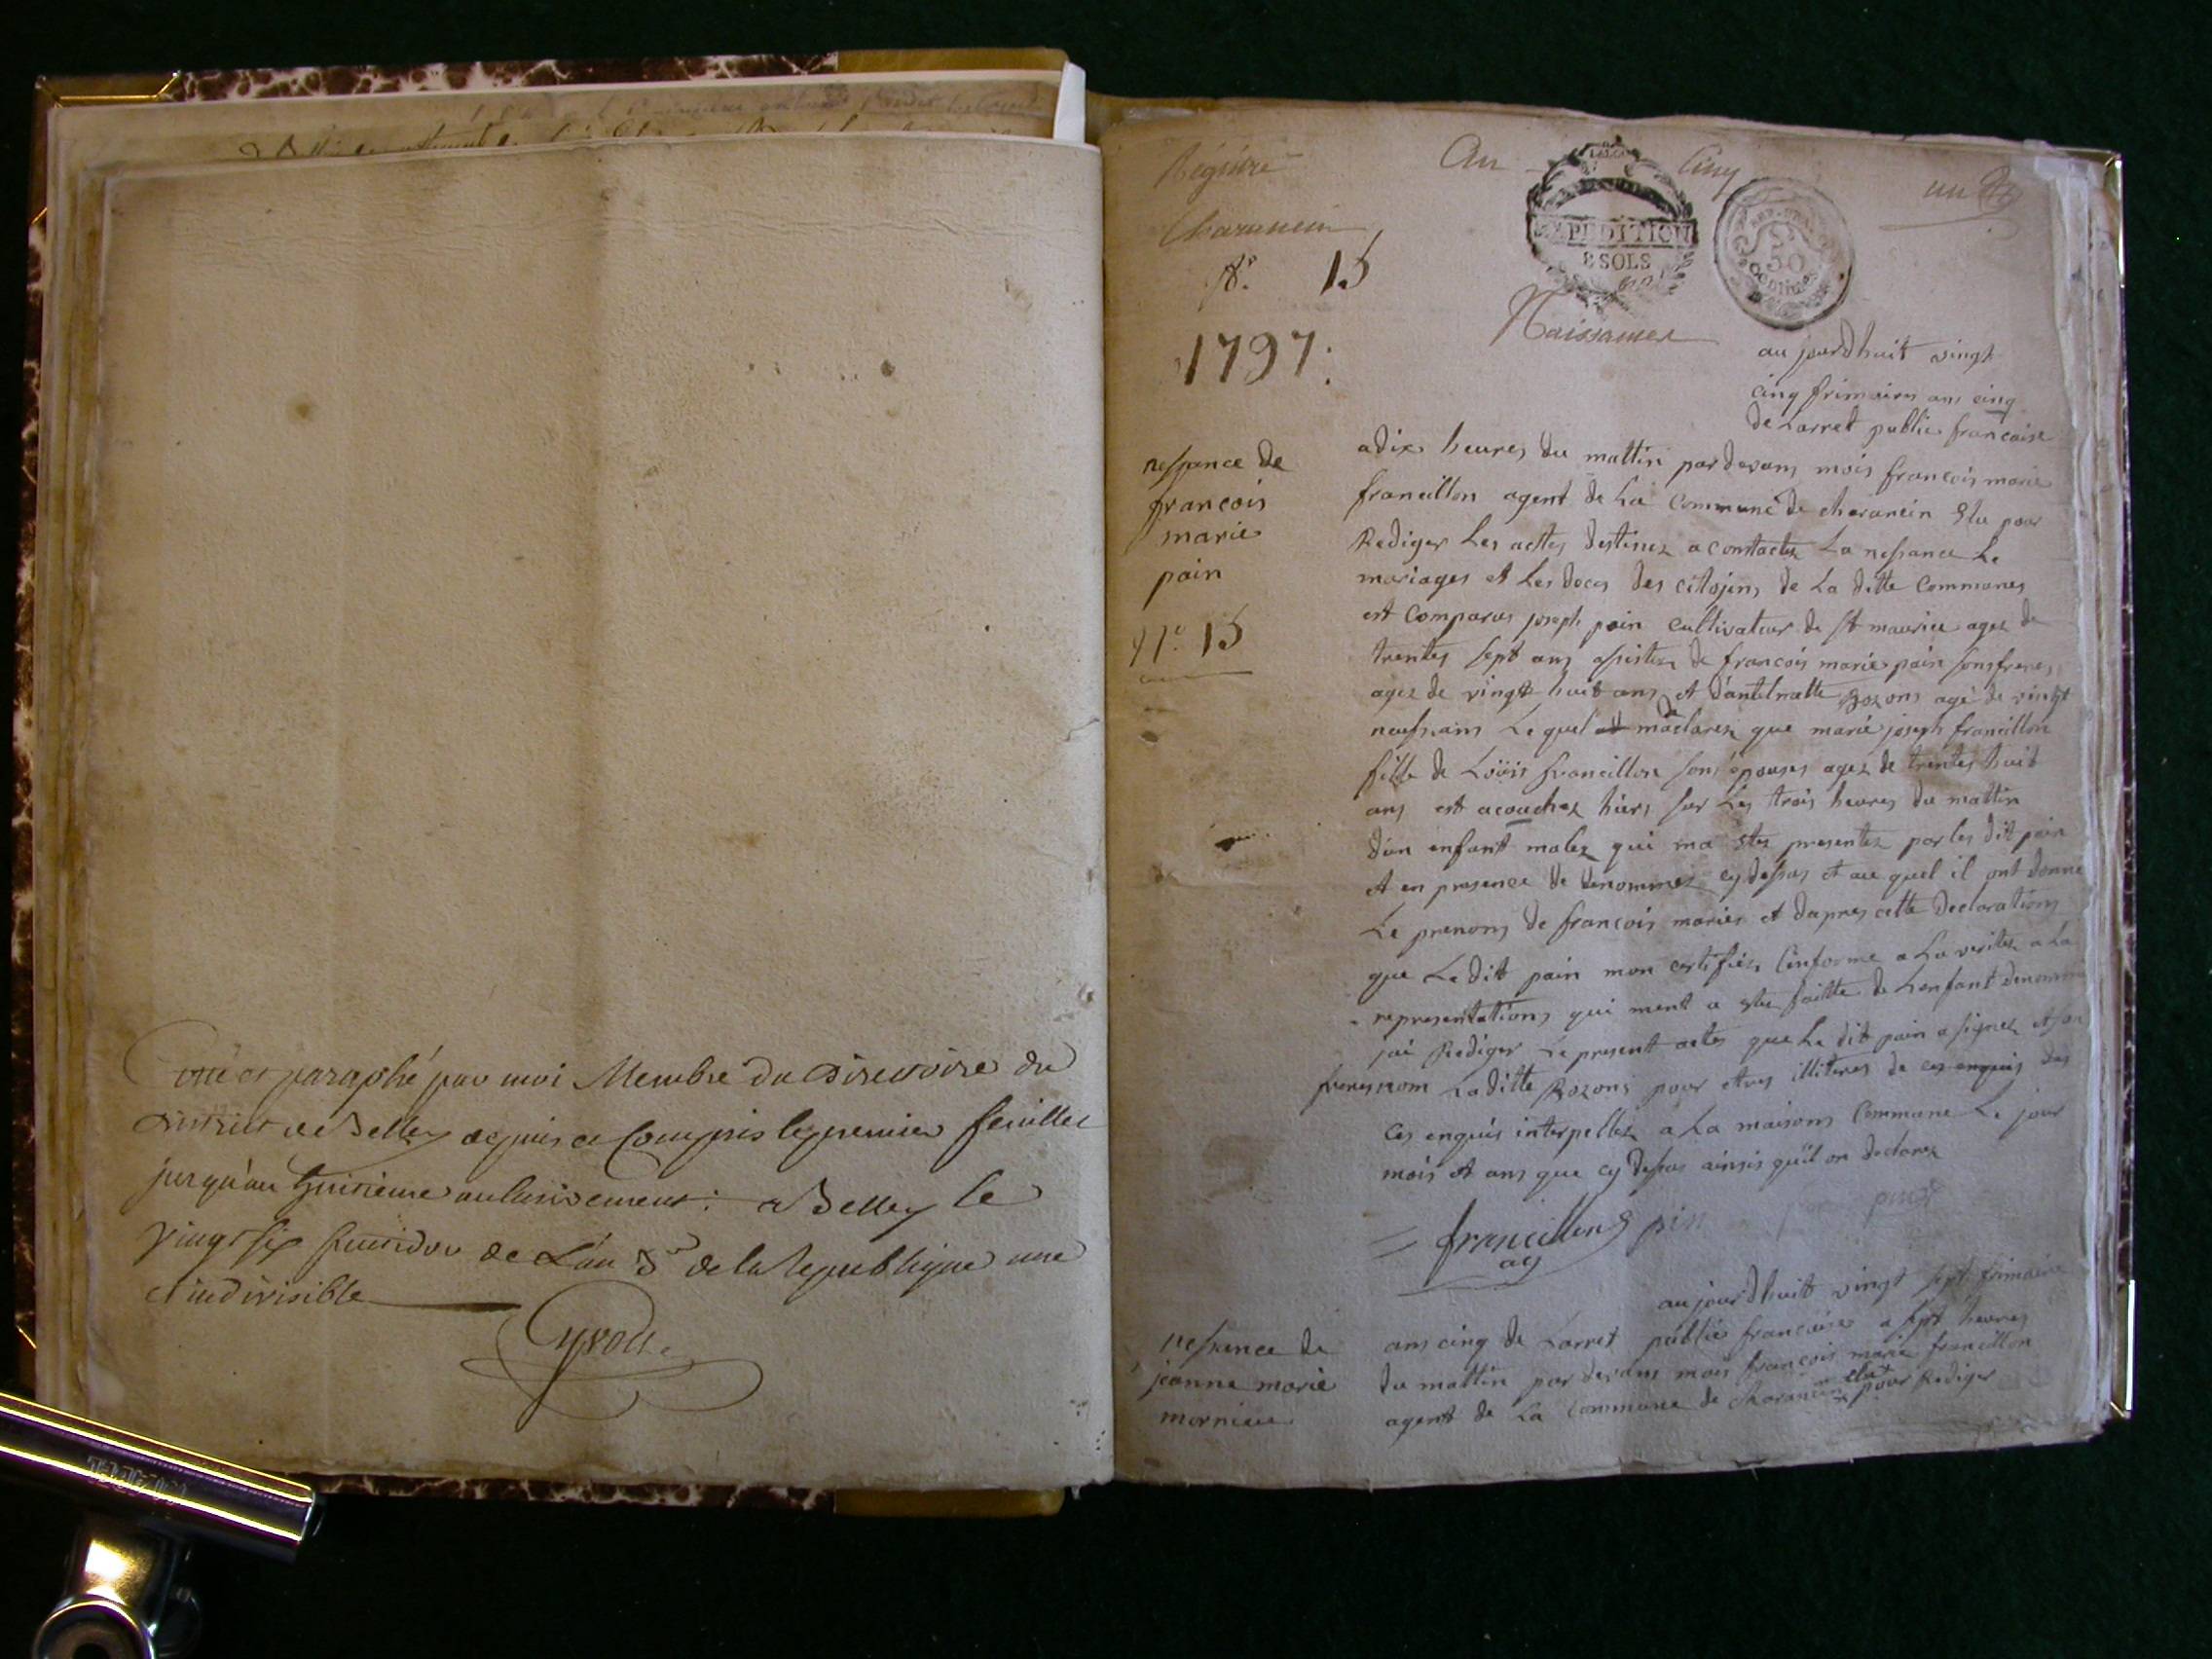 Cotté et paraphé par moi Membre du Directoire du
District de Belley depuis et Compris le premier feuillet
jusqu'au huitieme inclusivement: a Belley le
vingt six fructidor de L'an 3e de la Republique une
et indivisible
Registre An Cinq un
Charancin
N°. 15
EXPEDITION
8 SOLS
50
1797.
Naissances
au jourdhuit vingt
cinq frimaires ans cinq
de Larret public francaise
nessance de
francois
marie
pain
N° 15
adix heures du mattin par devans mois francois marie
francillon agent de La Commune de charancin Elu pour
Rediger Les acttes destinez a constactez La nessance Le
mariages et Les deces des citojens de La ditte Communes
est Comparus joseph pain cultivateur de St maurice agez de
trentes sept ans assistez de francois marie pain sons freres
agez de vingt huit ans et dantelmette Bozons agé de vingt
neufs ans Le quel ma declarez que marie joseph francillon
fille de Loüis francillon sons epouses agez de trentes huit
ans est acouchez hiers sur Les trois heures du mattin
dun enfant malez qui ma etez presentez par les dit pain
et en presence de denommez cy dessus et au quel il ont donne
Le prenoms de francois maries et dapres cette Declarations
que Le dit pain mon certifiez Conforme a La veritez a La
representations qui ment a etee faitte de Lenfant denomme
jai Rediger Le present actes que Le dit pain a signez et son
freres nom La ditte Bozons pour etres illiteres de ces enquis des
ces enquis interpellez a La maisons Commune Le jour
mois et ans que cy dessus ainsis quil on declarez
francillon pin
ag
au jourdhuit vingt sept frimaire
nessance de
jeanne marie
mornieu
ans cinq de Larret public francaise a sept heures
du mattin par devans mois francois marie francillon
agent de La Commune de charancin elu pour Rediger